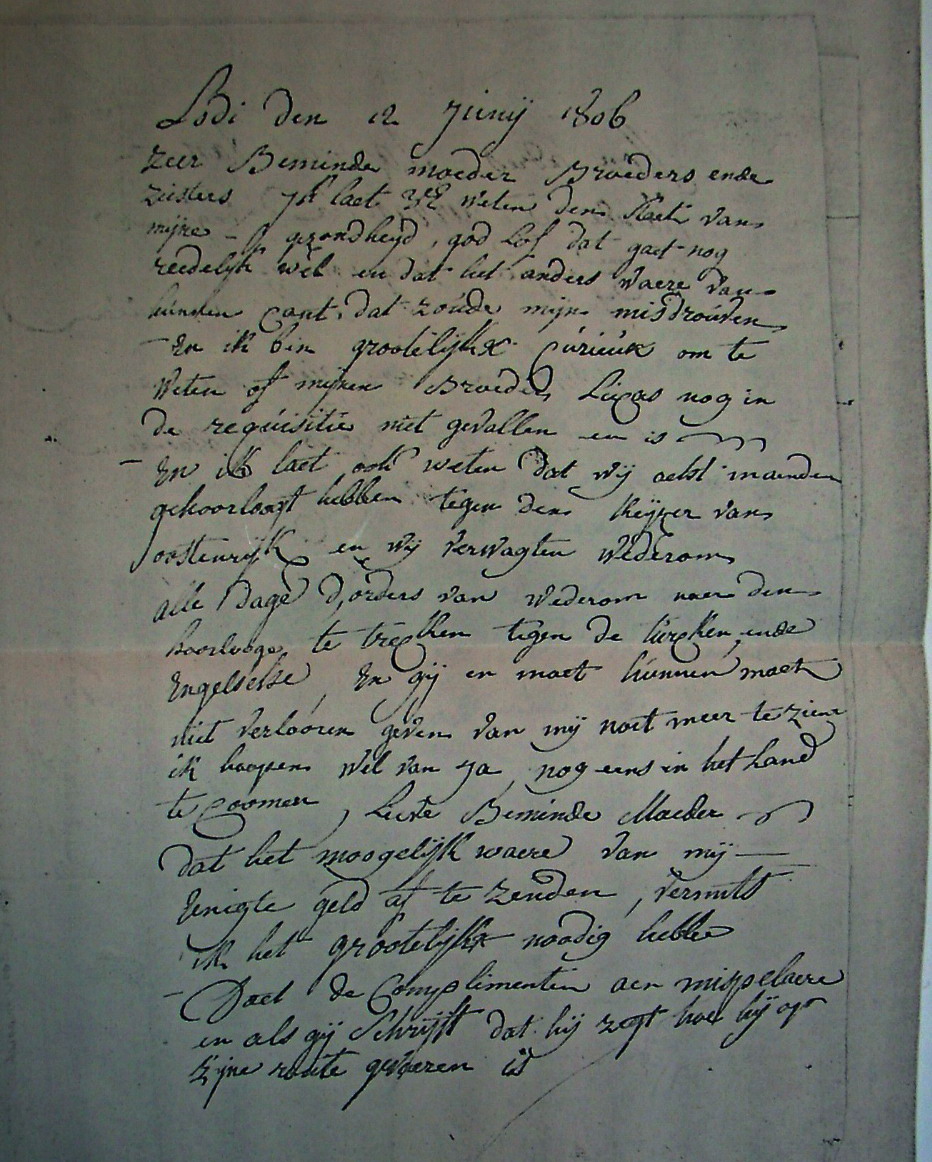 Lodi den 12 Junij 1806
zeer Beminde moeder Broeders ende
zusters ik laet UE weten den staet van
mijne gezondheyd, god lof dat gaet nog
redelijk wel en dat het anders waere van
hunnen cant, dat zoude mijn misdrouven
- En ik ben grootelijkx curieuk om te
weten of mijnen Broeder Lucas nog in
de requisitie niet gevallen en is
- En ik laet ook weten dat wij acht maenden
gehoorloogt hebben tegen den keyzer van
oostenrijk en wij verwagten wederom
alle dage d'orders van wederom naer den
hoorloge te trecken tegen de turcken ende
Engelsche, En gij en moet hunnen moet
niet verlooren geven van mij noit meer te zien
ik hoopen wel van ja nog eens in het land
te coomen, Lieve Beminde Moeder
dat het moogelijk waere van mij
Enigte geld af te zenden, vermits
ik het grootelijkx noodig hebbe
- Doet de Complimenten aen mispelaere
en als gij schrijft dat hij zegt hoe hij op
zijne route gevaeren is